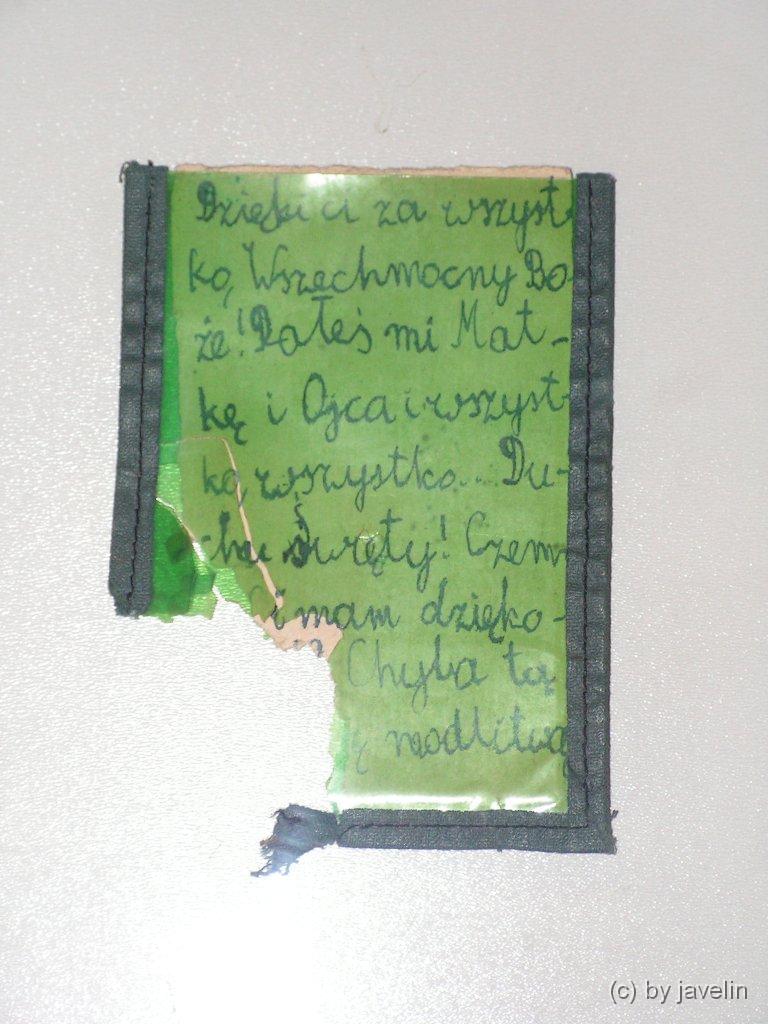 Dzięki ci za wszyst-
ko, Wszechmocny Bo-
że! Dałeś mi Mat-
kę i Ojca i wszyst-
ko wszystko... Du-
chu Święty! Czem
Ci mam dzięko-
Chyba tą
ą modlitwą
(c) by javelin